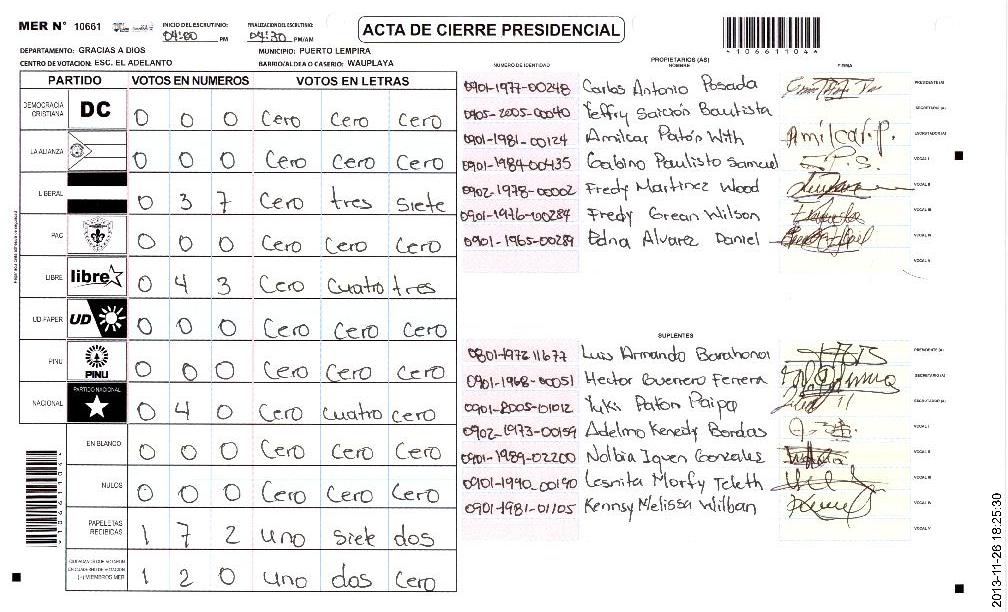 MER N° 10661
INICIO DEL ESCRUTINIO: 04:00 PM
FINALIZACION DEL ESCRUTINIO: 04:30 PM/AM
ACTA DE CIERRE PRESIDENCIAL
106611044
DEPARTAMENTO: GRACIAS A DIOS
MUNICIPIO: PUERTO LEMPIRA
CENTRO DE VOTACION: ESC. EL ADELANTO
BARRIO/ALDEA O CASERIO: WAUPLAYA
PARTIDO VOTOS EN NUMEROS VOTOS EN LETRAS
DEMOCRACIA CRISTIANA DC 0 0 0 Cero Cero Cero
LA ALIANZA 0 0 0 Cero Cero Cero
LIBERAL 0 3 7 Cero tres siete
PAC 0 0 0 Cero Cero Cero
LIBRE libre 0 4 3 Cero cuatro tres
UD FAPER UD 0 0 0 Cero Cero Cero
PINU PINU 0 0 0 Cero Cero Cero
NACIONAL PARTIDO NACIONAL 0 4 0 Cero cuatro cero
EN BLANCO 0 0 0 Cero Cero Cero
NULOS 0 0 0 Cero Cero Cero
PAPELETAS RECIBIDAS 1 7 2 uno siete dos
CIUDADANOS QUE VOTARON EN CUADERNO DE VOTACION (+) MIEMBROS MER 1 2 0 uno dos cero
PROPIETARIOS (AS)
NUMERO DE IDENTIDAD NOMBRE FIRMA
0901-1977-00248 Carlos Antonio Posada PRESIDENTE (A)
0905-2005-00040 Yeffry Saición Bautista SECRETARIO (A)
0901-1981-00124 Amilcar Patón With Amilcar.P. ESCRUTADOR (A)
0901-1984-00435 Gabino Paulisto Samuel P.S. VOCAL I
0902-1978-00002 Fredy Martinez Wood VOCAL II
0901-1976-00284 Fredy Grean Wilson VOCAL III
0901-1965-00289 Edna Alvarez Daniel VOCAL IV
VOCAL V
SUPLENTES
0801-1972 11677 Luis Armando Barahona PRESIDENTE (A)
0901-1968-00051 Hector Guerrero Ferrera SECRETARIO (A)
0901-2005-01012 Yuki Patón Paipa ESCRUTADOR (A)
0902-1973-00159 Adelmo Kenedy Bordas VOCAL I
0901-1989-02200 Nolbia Iquen Gonzales VOCAL II
0901-1990-00190 Lesnita Morfy Teleth VOCAL III
0901-1981-01105 Kennsy Melissa Wilban VOCAL IV
VOCAL V
2013-11-26 18:25:30